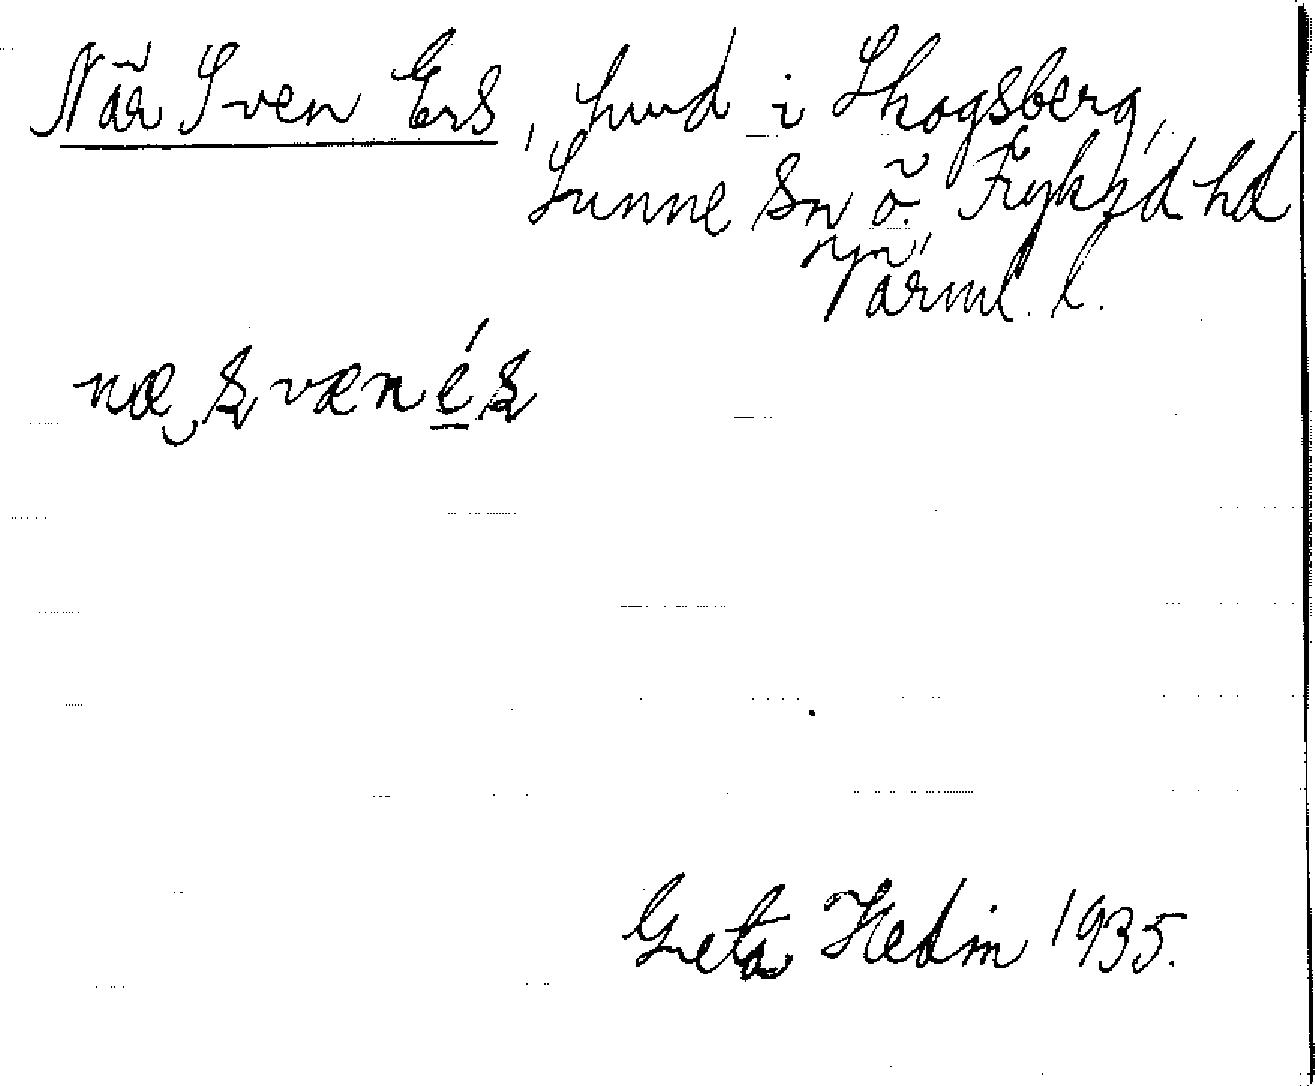 När Sven Ers, hmd i Skogsberg,
Sunne sn ö. Fryksd hd
Värml. l.
næ svænés
Greta Hedin 1935.